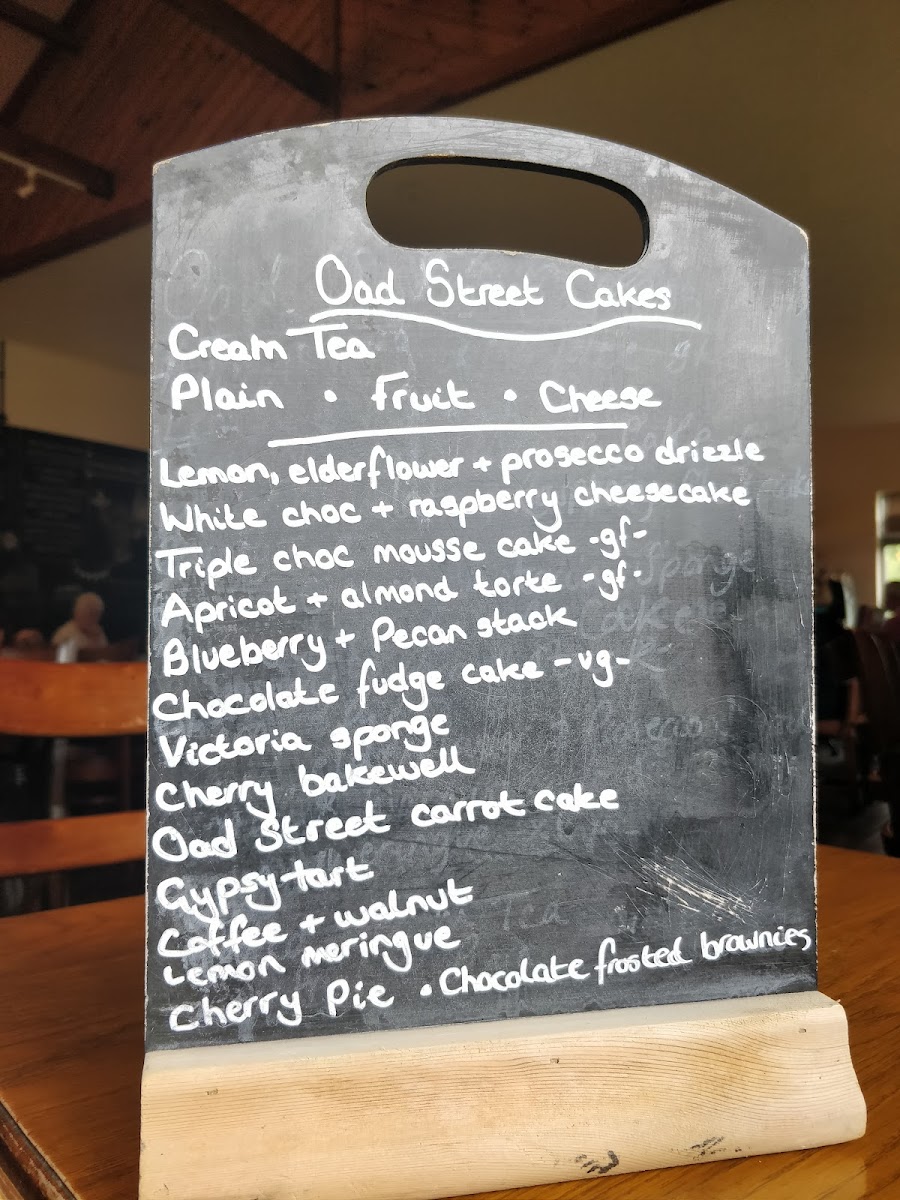 Oad Street Cakes
Cream Tea
Plain • Fruit • Cheese
Lemon, elderflower + prosecco drizzle
White choc + raspberry cheesecake
Triple choc mousse cake -gf-
Apricot + almond torte -gf-
Blueberry + Pecan stack
Chocolate fudge cake -vg-
Victoria sponge
Cherry bakewell
Oad Street carrot cake
Gypsy tart
Coffee + walnut
Lemon meringue
Cherry Pie • Chocolate frosted brownies